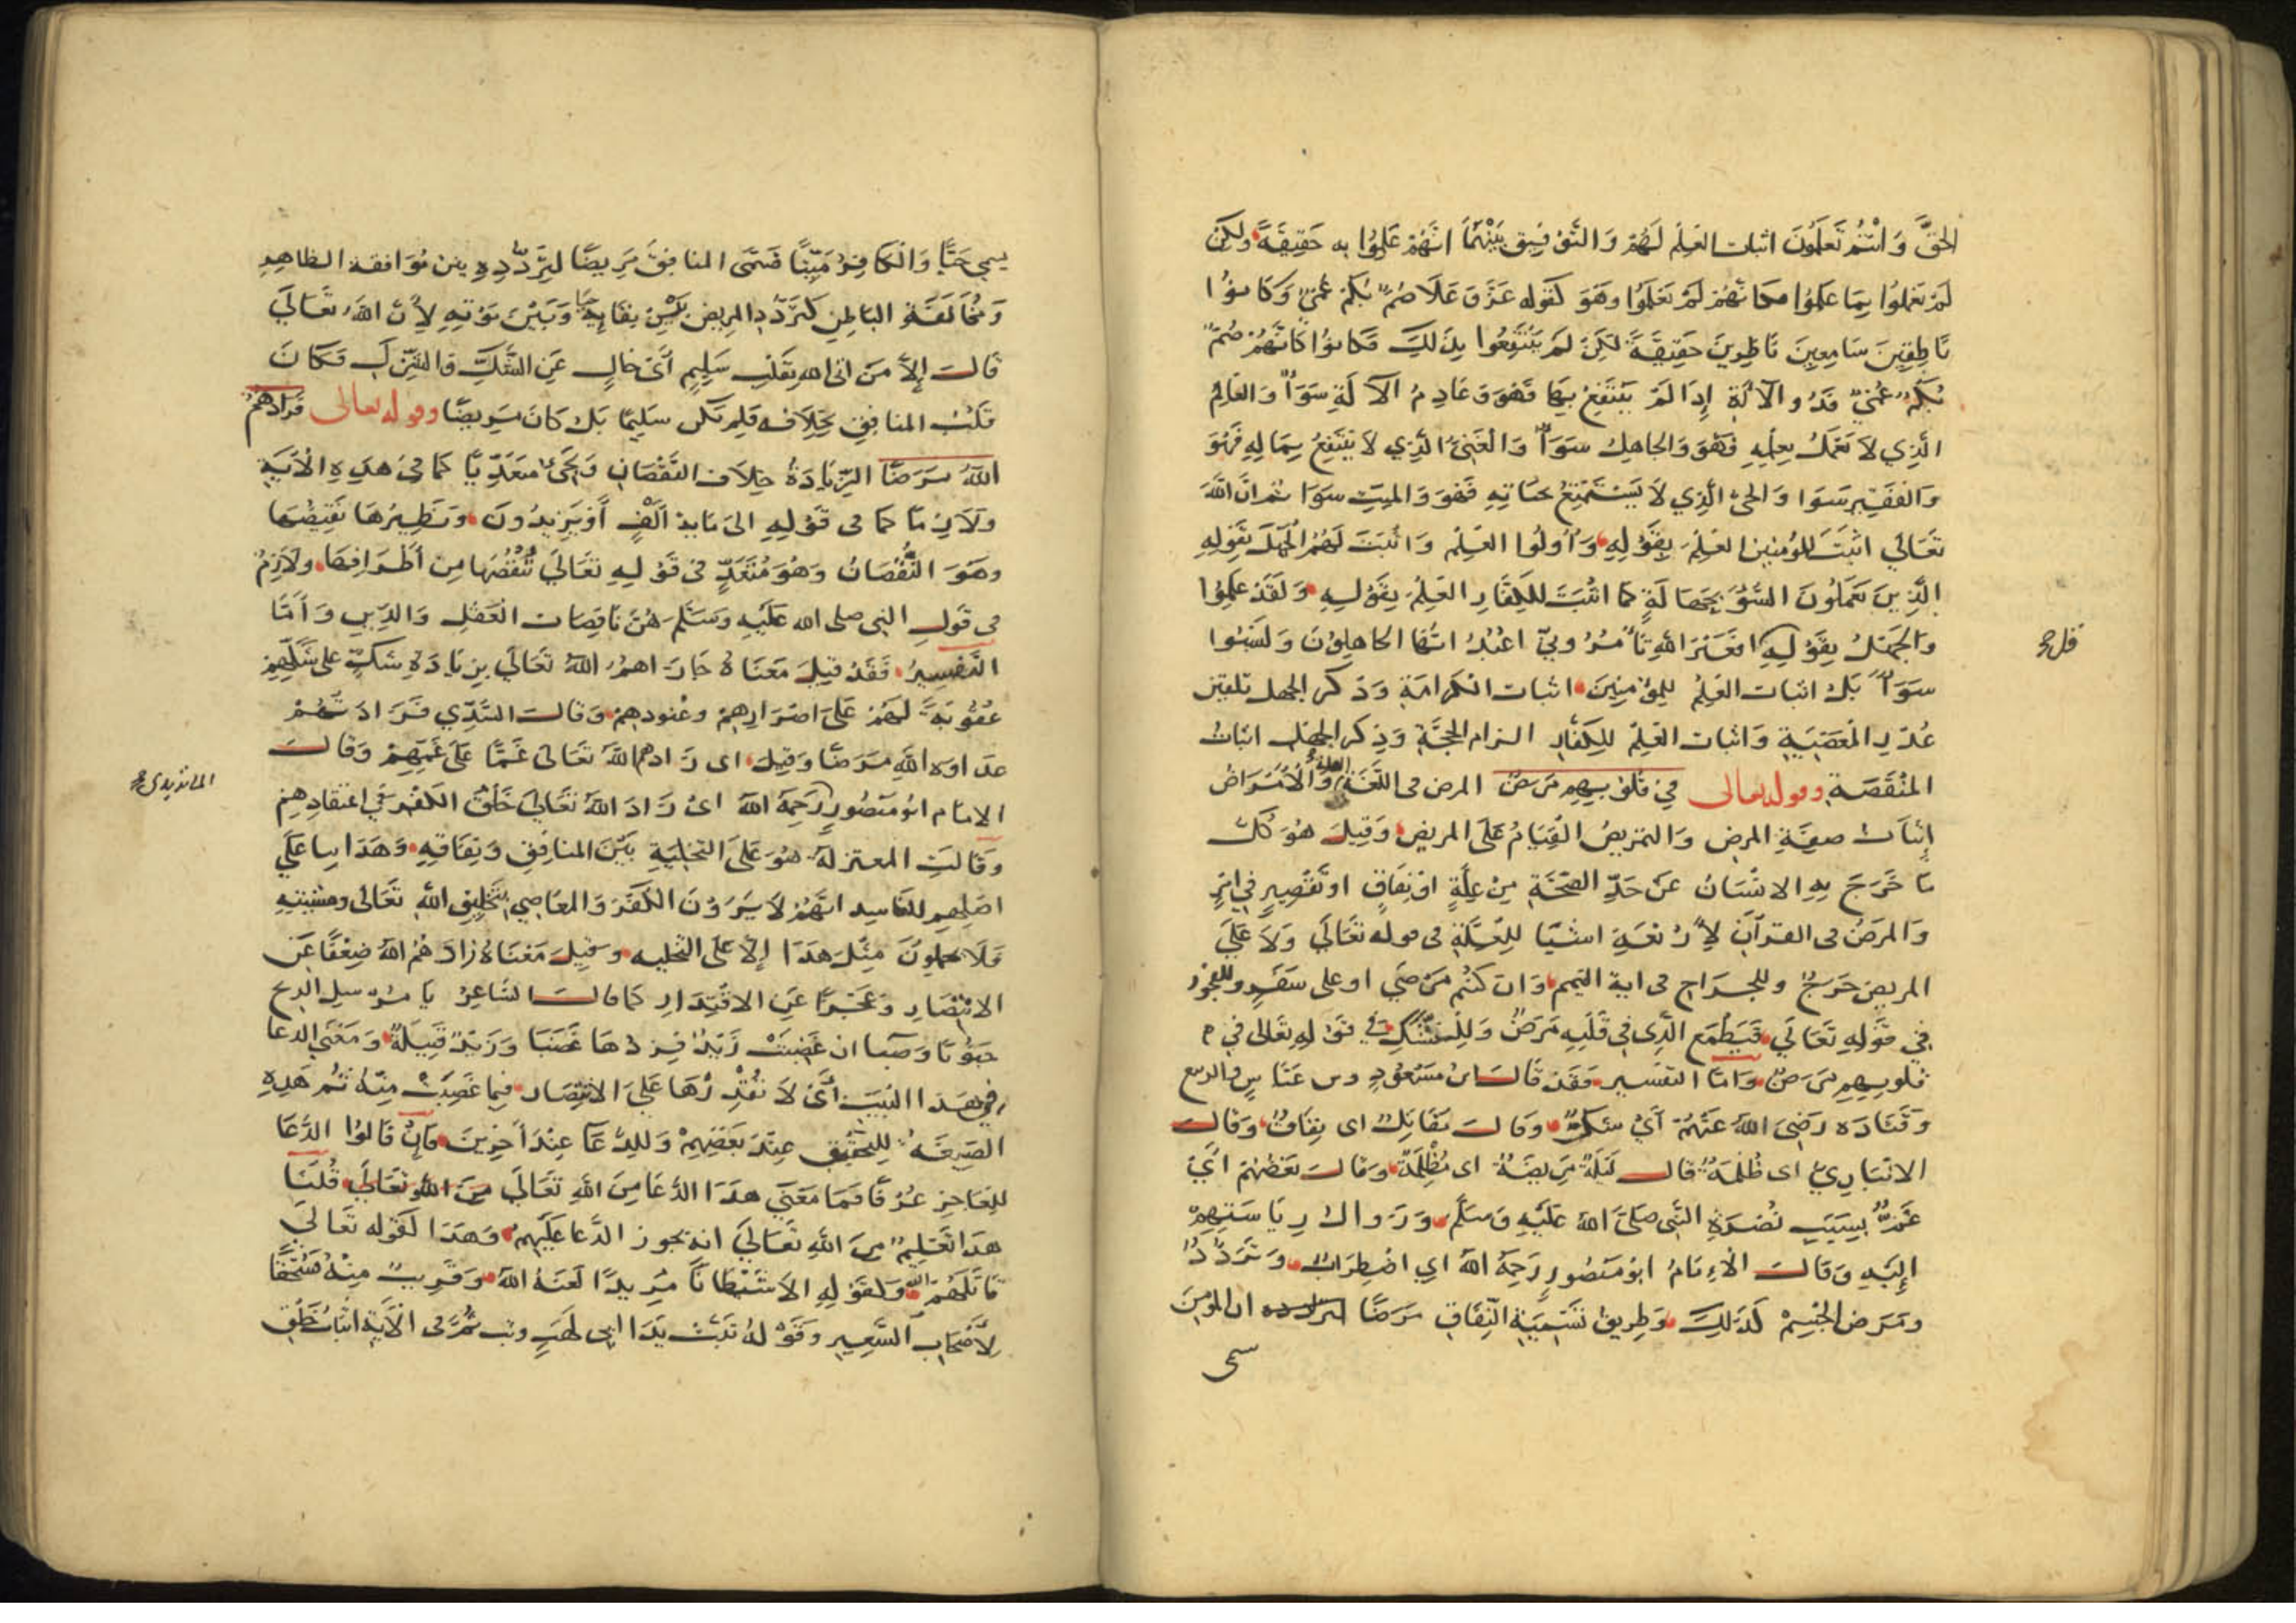 الحقَّ وَانتُم تَعلَمُونَ اثبات العِلْم لَهُمْ وَالتَّوْفِيق بَيْنَهُمَا انَّهُمْ عَلِمُوا به حَقِيقَةً ولكن
لَمْ يَعْمَلُوا بِمَا عَلِمُوا فكانَّهُمْ لَمْ يَعْلَمُوا وهُوَ كقوله عَزَّ وَعَلَا صُمٌّ بُكمٌ عُمْيٌ وَكَانوُا
نَاطِقِينَ سَامِعِينَ نَاظِرِينَ حَقِيقَةً لكِنْ لَمْ يَنْتَفِعُوا بِذَلِكَ فَكانوُا كَانَّهُمْ صُمٌّ
بُكْمٌ عُمْيٌ فَذُو الآلَةِ إِذَا لَمْ يَنْتَفِعْ بِهَا فَهُوَ وَعَادِمُ الآلَةِ سَوَآءٌ وَالعَالِمُ
الَّذِي لَا يَعْمَلُ بِعِلْمِهِ فَهُوَ وَالجَاهِلُ سَوَآءٌ وَالْغَنِيُّ الَّذِي لَا يَنْتَفِعُ بِمَالِهِ فَهُوَ
وَالفَقِيْر سَوَا وَالحَيّ الَّذِي لَا يَسْتَمْتِعُ بحَيَاتِهِ فَهُوَ وَالميتِ سَوَا ثم انَّ اللَّهَ
تَعَالَى اثْبَتَ لِلمُؤمِنين العِلْمَ بِقَوْلِهِ وَأُولُوا العِلْمِ وَاثْبَتَ لَهُمُ الْجَهْلَ بقَوْلِهِ
الَّذِينَ يَعْمَلُونَ السُّوْءَ بِجَهَالَةٍ كَمَا اثْبَتَ لِلكفَّارِ العِلْمَ بِقَوْلِهِ وَلَقَدْ عَلِمُوا
وَالجَهْلَ بِقَوْلِهِ افَغَيْرَ اللَّهِ تَأْمُرُونِّي اعْبُدُ ايُّهَا الجاهِلونَ وَلَيْسُوا
قل صح
سَوَآءً بَلْ اثبات العِلْمِ لِلمُؤْمِنِينَ اثبات الكرَامَةِ وَذكر الجهل تلقين
عُذْرِ المَعْصِيَةِ وَاثبات العِلْمِ لِلكفَّارِ الزام الحجَّةِ وَذِكر الجهْل اثبات
المنْقَصَة وقوله تعالى فِي قُلُوبِهِم مَرَضٌ المرض في اللُّغَةِ العلة وَالامْرَاضُ
إثبَات صفَةِ المرض وَالتمريضُ القِيَامُ عَلَى المريض وَقِيلَ هُوَ كُلّ
مَا خَرَجَ بِهِ الانْسَانُ عَنْ حَدِّ الصِّحَّةِ مِنْ عِلَّةٍ اوْ نِفَاقٍ اوْ تَقْصِيرٍ في امْرٍ
وَالمَرَضُ في القرآن لِأَرْبَعَةِ اشْيَا لِلعِلَّةِ في قوله تَعَالَى وَلَا عَلَى
المريض حَرَجٌ وللجراح في اية التيمم وَان كنْتُم مَرْضَى او على سَفَرٍ وللفجور
في قَوْلِهِ تَعَالَى فَيَطْمَع الَّذِي في قَلْبِهِ مَرَضٌ وَلِلشَّكِّ في قَوْلِهِ تَعَالى في
قلوبِهِم مَرَضٌ وَامَّا التفسير فَقَدْ قَالَ ابْنُ مَسْعُودٍ وابن عَبَّاسٍ والربيع
وَقَتَادَه رَضِيَ اللَّهُ عَنْهُمْ أَيْ شكٌّ وَقَالَ مقَاتِلٌ اى نِفَاقٌ وَقَالَ
الانْبَارِيّ اى ظُلْمَةٌ قالَ لَيْلَةٌ مَرِيضَةٌ اى مُظْلِمَةٌ وَقَالَ بَعْضُهُمْ أَيْ
غَمٌّ بِسَبَبِ نُصْرَةِ النَّبِي صَلَّى اللَّهُ عَلَيْهِ وَسَلَّم وَزَوال رِيَاسَتِهِمْ
إِلَيْهِ وَقَالَ الْامَامُ ابُو مَنصُورٍ رَحِمَهُ اللَّهُ اي اضْطِرَابٌ وَتَرَدُّدٌ
وَمَرَض الجِسْمِ كَذَلِكَ وَطَرِيق تَسْمِيَةِ النِّفَاقِ مَرَضًا ان المؤمِنَ
سمى
يسمى حَيًّا وَالكَافِرُ مَيِّتًا فسَمَّى المنافِقَ مَرِيضًا لِتَرَدُّدِهِ بين مُوَافَقَة الظاهِرِ
وَمُخَالَفَةِ البَاطِنِ كَتَرَدُّدِ المريض بَيْنَ بقَائِهِ حيا وَبَيْنَ مَوْتِهِ لِأَنَّ اللَّهَ تَعَالَى
قَالَ إِلاَّ مَنْ اتى الله بقَلْبٍ سَلِيمٍ أَيْ خَالٍ عَنِ الشَّكِّ وَالشِّرْكِ فَكَانَ
قَلْبُ المنافِقِ بِخِلَافِه فَلم يَكن سَلِيمًا بَل كَانَ مَرِيضًا وقوله تعالى فزَادَهُمُ
اللَّهُ مَرَضًا الزِّيَادَةُ خِلَافُ النُّقْصَانِ وَيَجِيْءُ متَعَدِّيًا كَمَا فِي هَذِهِ الْآيَةِ
وَلَازِمًا كمَا في قَوْلِهِ الى مَايةِ أَلْفٍ أَوْ يَزِيدُونَ وَنَظِيرُهَا نَقِيضُهَا
وهَوَ النُّقْصَانُ وَهُوَ مُتَعَدٍّ في قَوْلِهِ تعَالَى نَنْقُصُهَا مِنْ أَطْرَافِهَا وَلَازِمٌ
في قَولِ النبي صلى الله عَلَيْهِ وَسَلَّم هُنَّ نَاقِصَات العَقْلِ وَالدِّينِ وَأَمَّا
التَّفْسِيرُ فَقَدْ قِيلَ مَعْنَاهُ جَازَاهُمُ اللَّهُ تَعَالَى بزِيَادَةِ شَكٍّ على شَكِّهِمْ
عُقُوْبَةً لَهُمْ عَلَى اصْرَارِهِمْ وعُنُودِهِمْ وَقَالَ السُّدِّي فَزَادَتْهُمْ
عدَاوة اللَّهِ مَرَضًا وَقِيلَ اى زَادهم اللَّهُ تعَالَى غَمًّا عَلَى غَمِّهِمْ وَقَالَ
الامَام ابُو مَنصُورٍ رَحِمَهُ اللَّهُ اىْ زَادَ اللَّهُ تعَالَى خَلْقَ الكُفْر في اعْتِقَادِهِمْ
الماتريدى صح
وَقَالَتِ المعتزلةُ هُوَ عَلَى التخْلِيَةِ بَيْنَ المنَافِقِ وَنِفَاقِهِ وَهَذَا بنا عَلَى
اصْلِهِم الفَاسِد انَّهُمْ لَا يَرَوْنَ الكُفْرَ وَالمعَاصِي بتَخْلِيقِ اللَّهِ تَعَالى ومشِيئَتِهِ
وَلَا يحملونَ مِثْلَ هَذَا إِلَّا عَلَى التخلِيه وَقِيلَ مَعْنَاهُ زَادَهُمُ اللَّهُ ضَعْفًا عَنِ
الانْتِصَارِ وَعَجْزًا عَنِ الاقْتِدَارِ كَمَا قَالَ الشَّاعِرُ يَا مُرْسِل الريح
جَنُوبًا وَصَبا ان غَضِبَتْ زَيْدٌ فَزِدْهَا غَضَبَا وَزَيْدٌ قَبِيلَةٌ وَمَعْنَى الدعا
في هَذَا البَيت أَيْ لَا تُقْدِرْهَا عَلَى الانْتِصَار فيمَا غَضِبَتْ مِنْهُ ثُم هَذِهِ
الصِّيغَة لِلتحْقيق عِنْدَ بَعْضِهِمْ وَلِلدُّعَا عِنْدَ آخَرِينَ فَإِنْ قَالوُا الدُّعَا
لِلعَاجِزِ عُرْفًا فَمَا مَعْنَى هَذَا الدُّعَا مِنَ اللَّهِ تَعَالَى قُلْنَا
هَذَا تَعْلِيمٌ مِنَ اللَّهِ تَعَالَى انه يجوز الدُّعا عَلَيْهِمْ وَهَذَا كقَوْله تَعَالَى
قَاتَلَهُمُ الله وَكقَوْلِهِ الا شَيْطَانًا مَرِيدًا لَعَنَهُ اللَّهُ وَقَرِيبٌ مِنْهُ فَسُحْقًا
لِأَصْحَابِ السَّعِيرِ وَقَوْلُهُ تَبَّتْ يَدَا ابي لهَبٍ وتب ثُمَّ في الآيَةِ اثْبَاتُ خَلْقِ